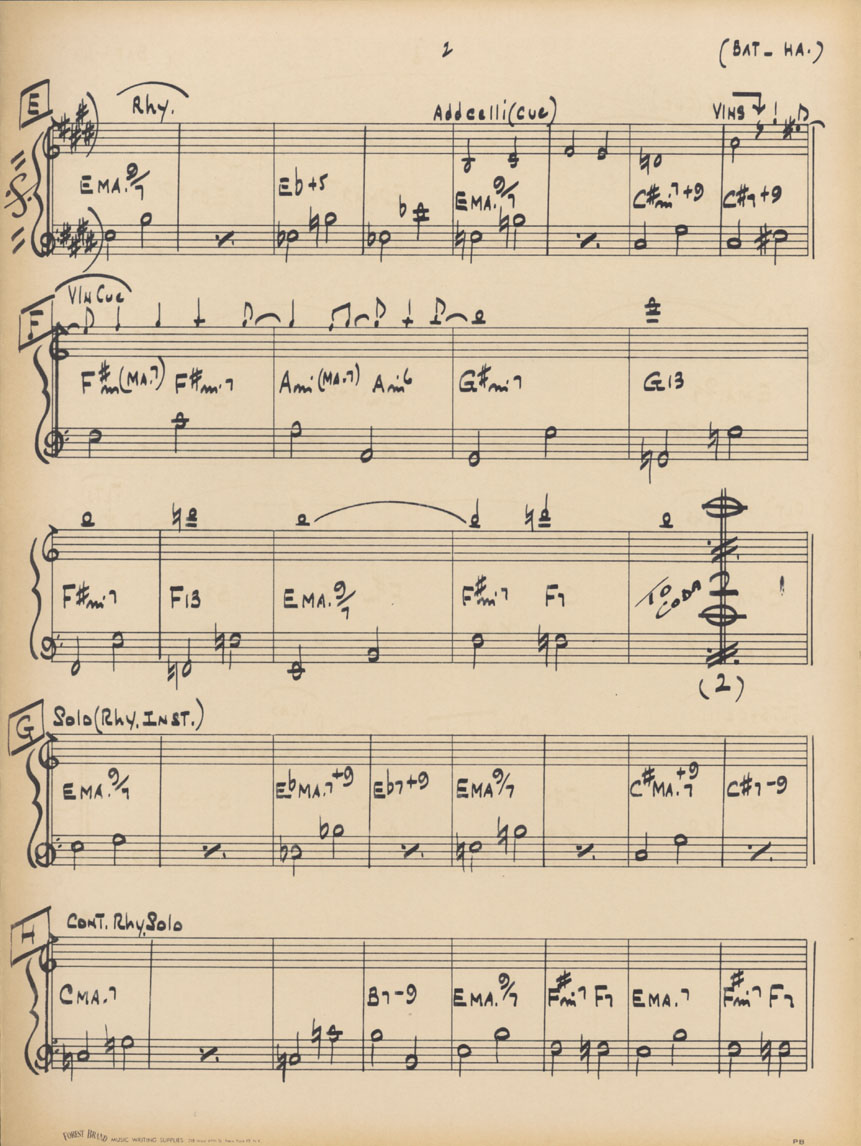 2 (BAT - HA.)
E Rhy. Add celli (cue) VLNS
EMA.9/7 Eb+5 EMA.9/7 C#mi7+9 C#7+9
VLN Cue
F
F#mi(MA.7) F#mi.7 Ami(MA.7) Ami6 G#mi7 G13
F#mi7 F13 EMA.9/7 F#mi7 F7 TO CODA
(2)
G Solo (Rhy. INST.)
EMA.9/7 EbMA.7+9 Eb7+9 EMA9/7 C#MA.7+9 C#7-9
H CONT. Rhy. Solo
CMA.7 B7-9 EMA.9/7 F#mi7 F7 EMA.7 F#mi7 F7
FOREST BRAND MUSIC WRITING SUPPLIES. PB